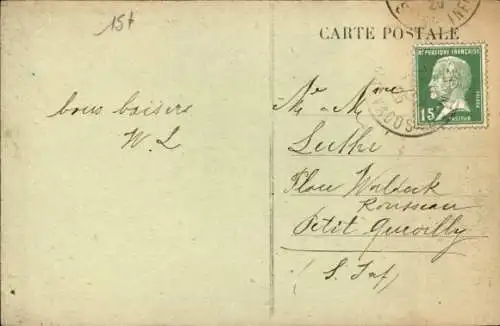 15t
CARTE POSTALE
REPUBLIQUE FRANÇAISE
15c
PASTEUR
bons baisers
W. L
Mr & Mme
Luthe
Place Waldeck
Rousseau
Petit Quevilly
(S. Inf)